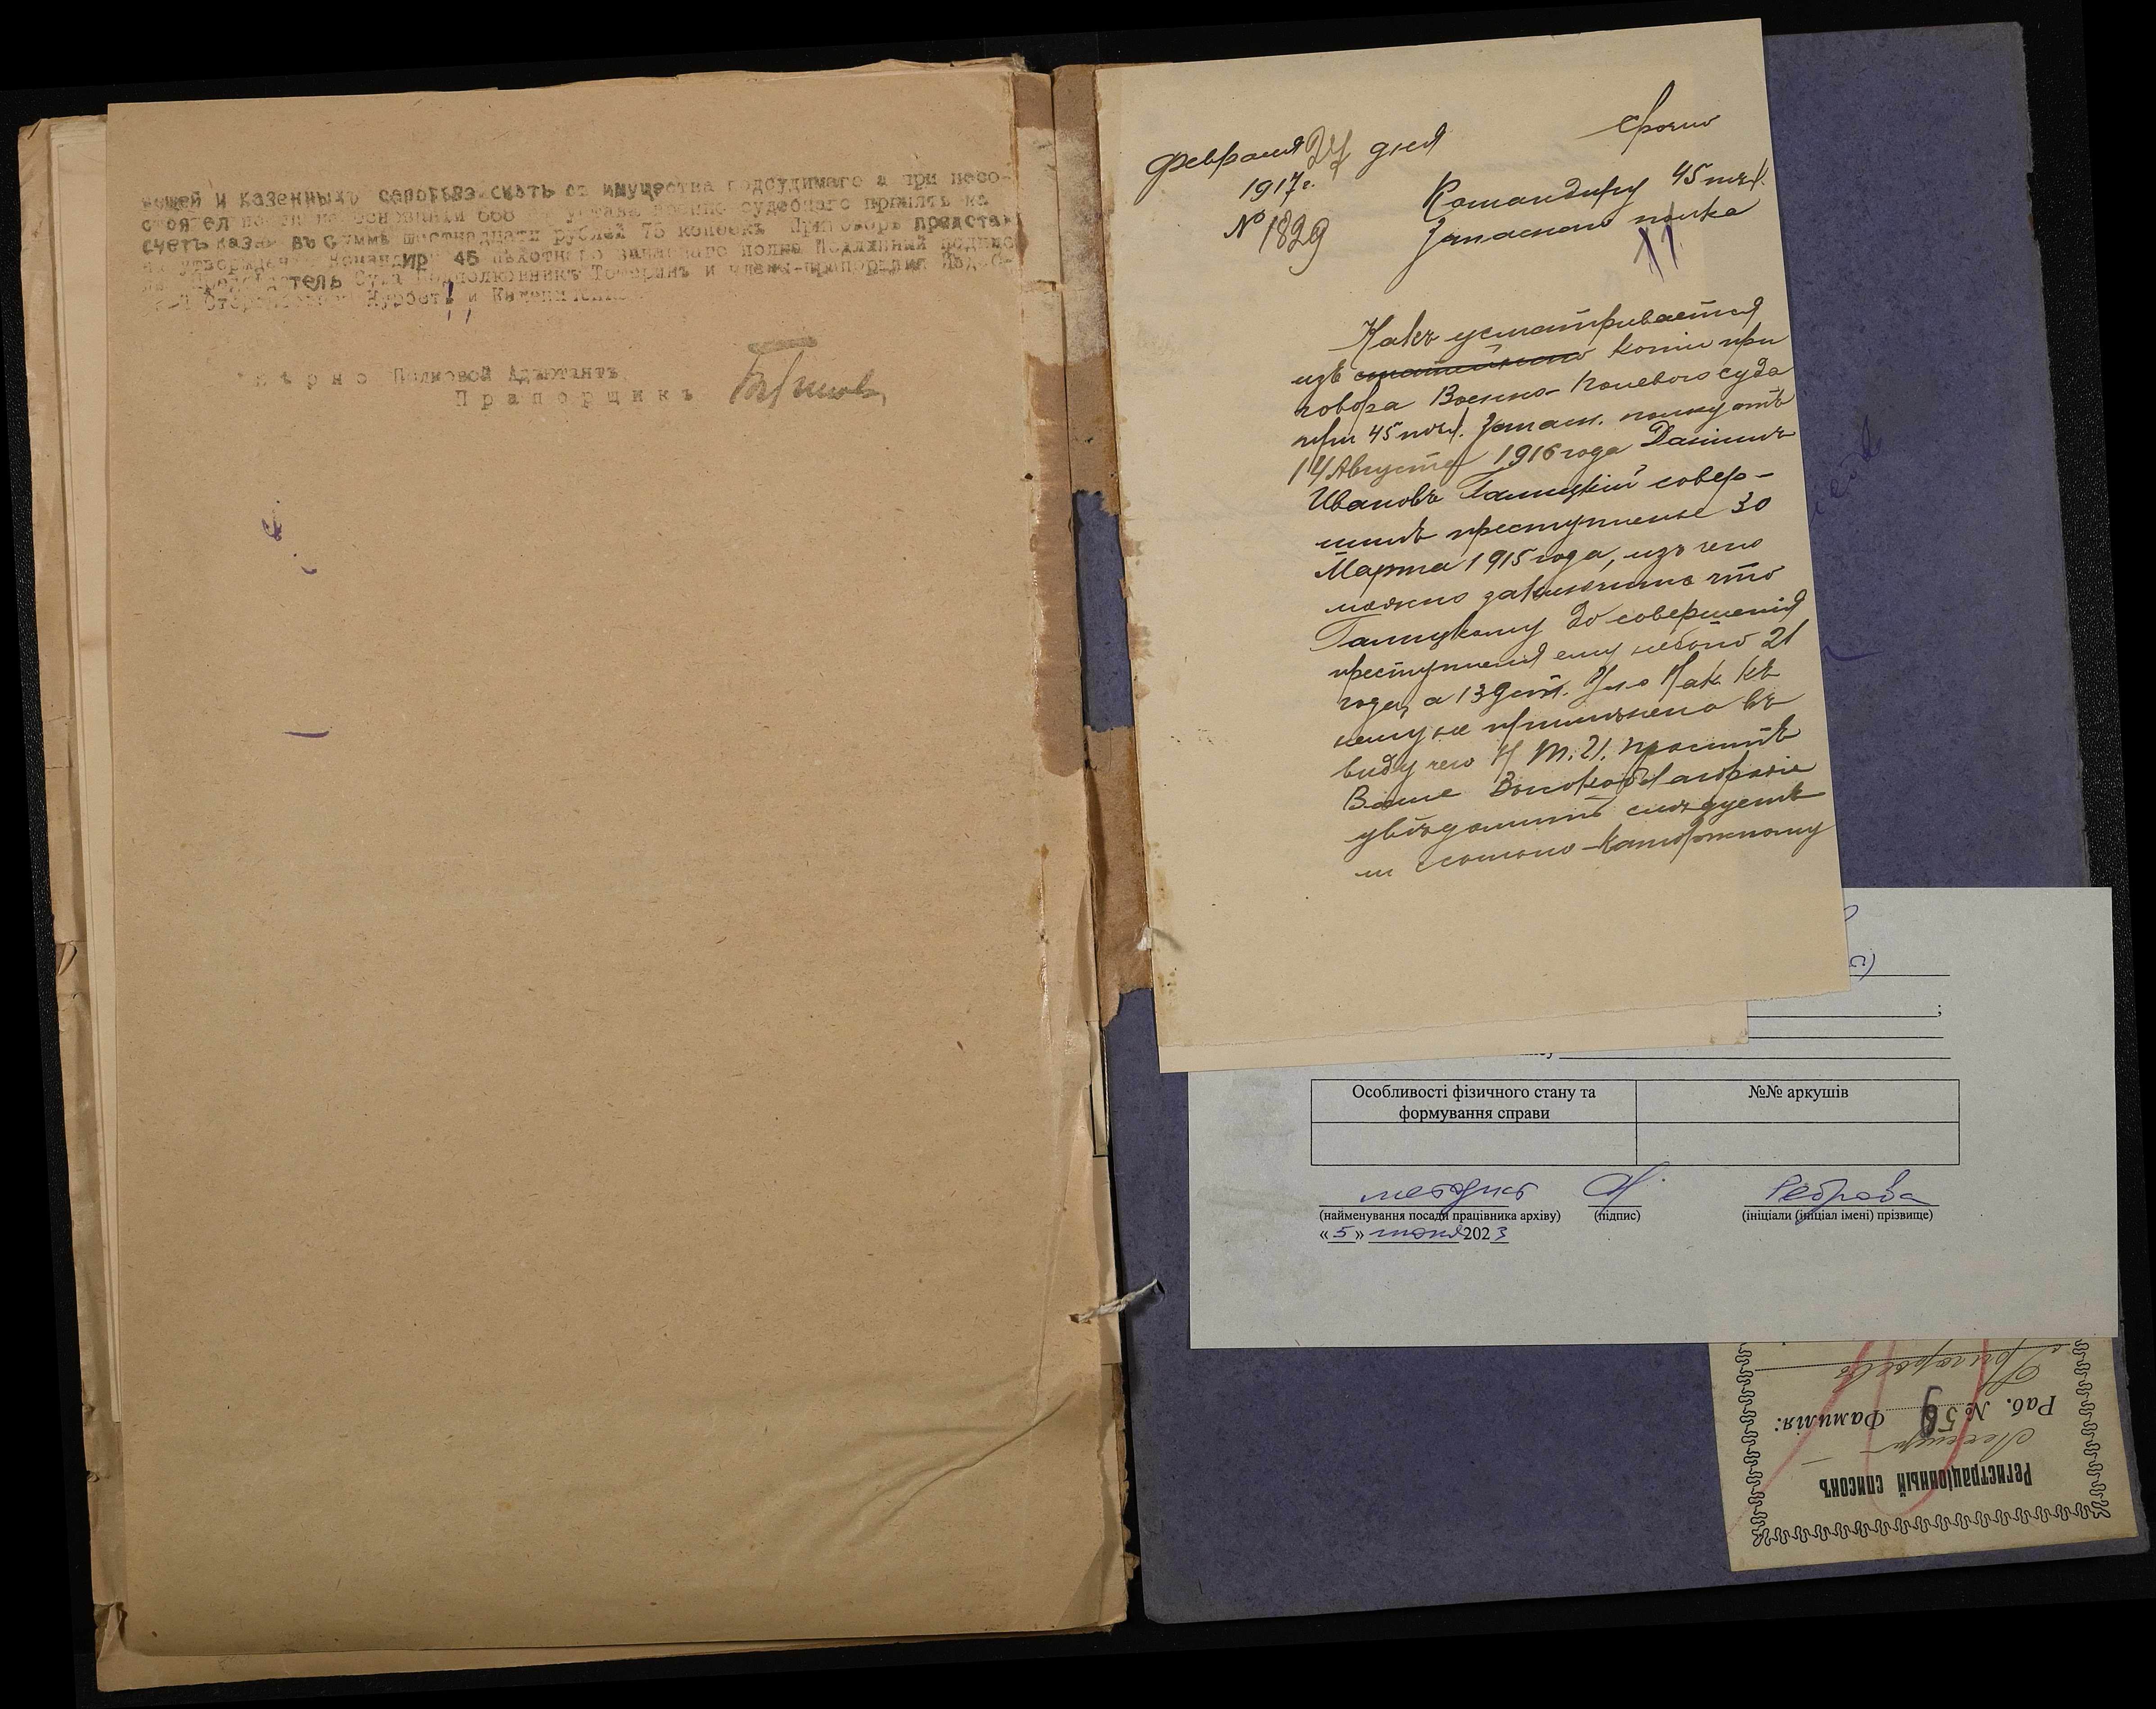 вещей и казенныхъ сапоговъ взыскать съ имущества подсудимаго а при несо-
стоятельности на основаніи 668 ст устава военно судебнаго принять на
счетъ казны въ суммѣ шестнадцати рублей 75 копеекъ Приговоръ представ
на утвержденіе Командира 45 пѣхотнаго запаснаго полка Подлинный подписа
Предсѣдатель Суда Подполковникъ и члены прапорщики
и
Вѣрно Полковой Адъютантъ
Прапорщикъ
Срочно
Февраля 27 дня
1917 г.
№ 1829
Командиру 45 пѣх.
Запасного полка
Какъ усматривается
изъ копіи при
говора Военно-Полевого суда
при 45 пѣх. Запасн. полку отъ
14 Августа 1916 года Даніилъ
Ивановъ Галицкій совер-
шилъ преступленіе 30
Марта 1915 года, изъ чего
можно заключить что
Галицкому до совершенія
преступленія ему небыло 21
года, а 139 ст. Улож Нак. къ
нему не примѣнена въ
виду чего К. Т. И. проситъ
Ваше Высокоблагородіе
увѣдомить слѣдуетъ
ли ссыльно-каторжному
;
Особливості фізичного стану та
формування справи
№№ аркушів
методист
Реброва
(найменування посади працівника архіву) (підпис) (ініціали (ініціал імені) прізвище)
«5» июня 2023
Регистраціонный списокъ
Раб. № 59 Фамилія:
Григорьевъ